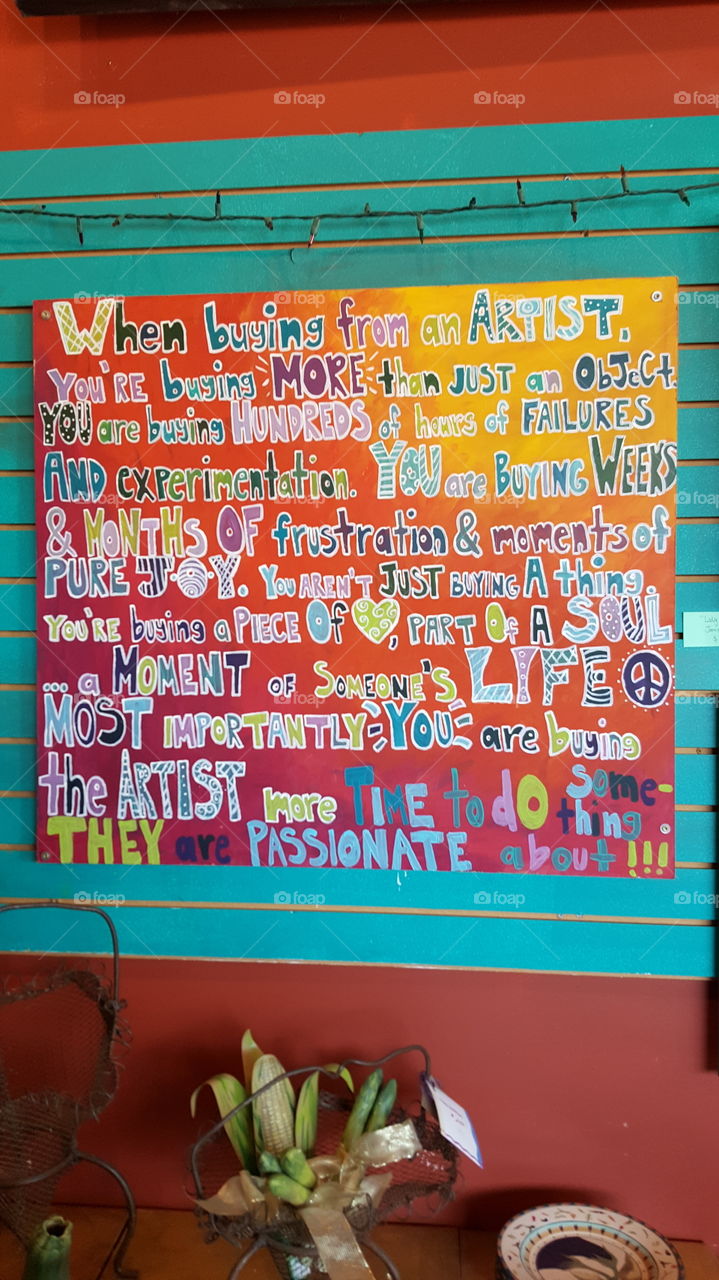 When buying from an ARTIST,
YOU'RE buying MORE than JUST an OBJeCt.
YOU are buying HUNDREDS of hours of FAILURES
AND experimentation. YOU are BUYING WEEKS
& MONTHS OF frustration & moments of
PURE JOY. YOU AREN'T JUST BUYING A thing.
YOU'RE buying a PIECE OF ♡, PART OF A SOUL
...a MOMENT OF SOMEONE'S LIFE ☮
MOST IMPORTANTLY YOU are buying
the ARTIST more TIME to dO some-
thing
THEY are PASSIONATE about!!!
foap